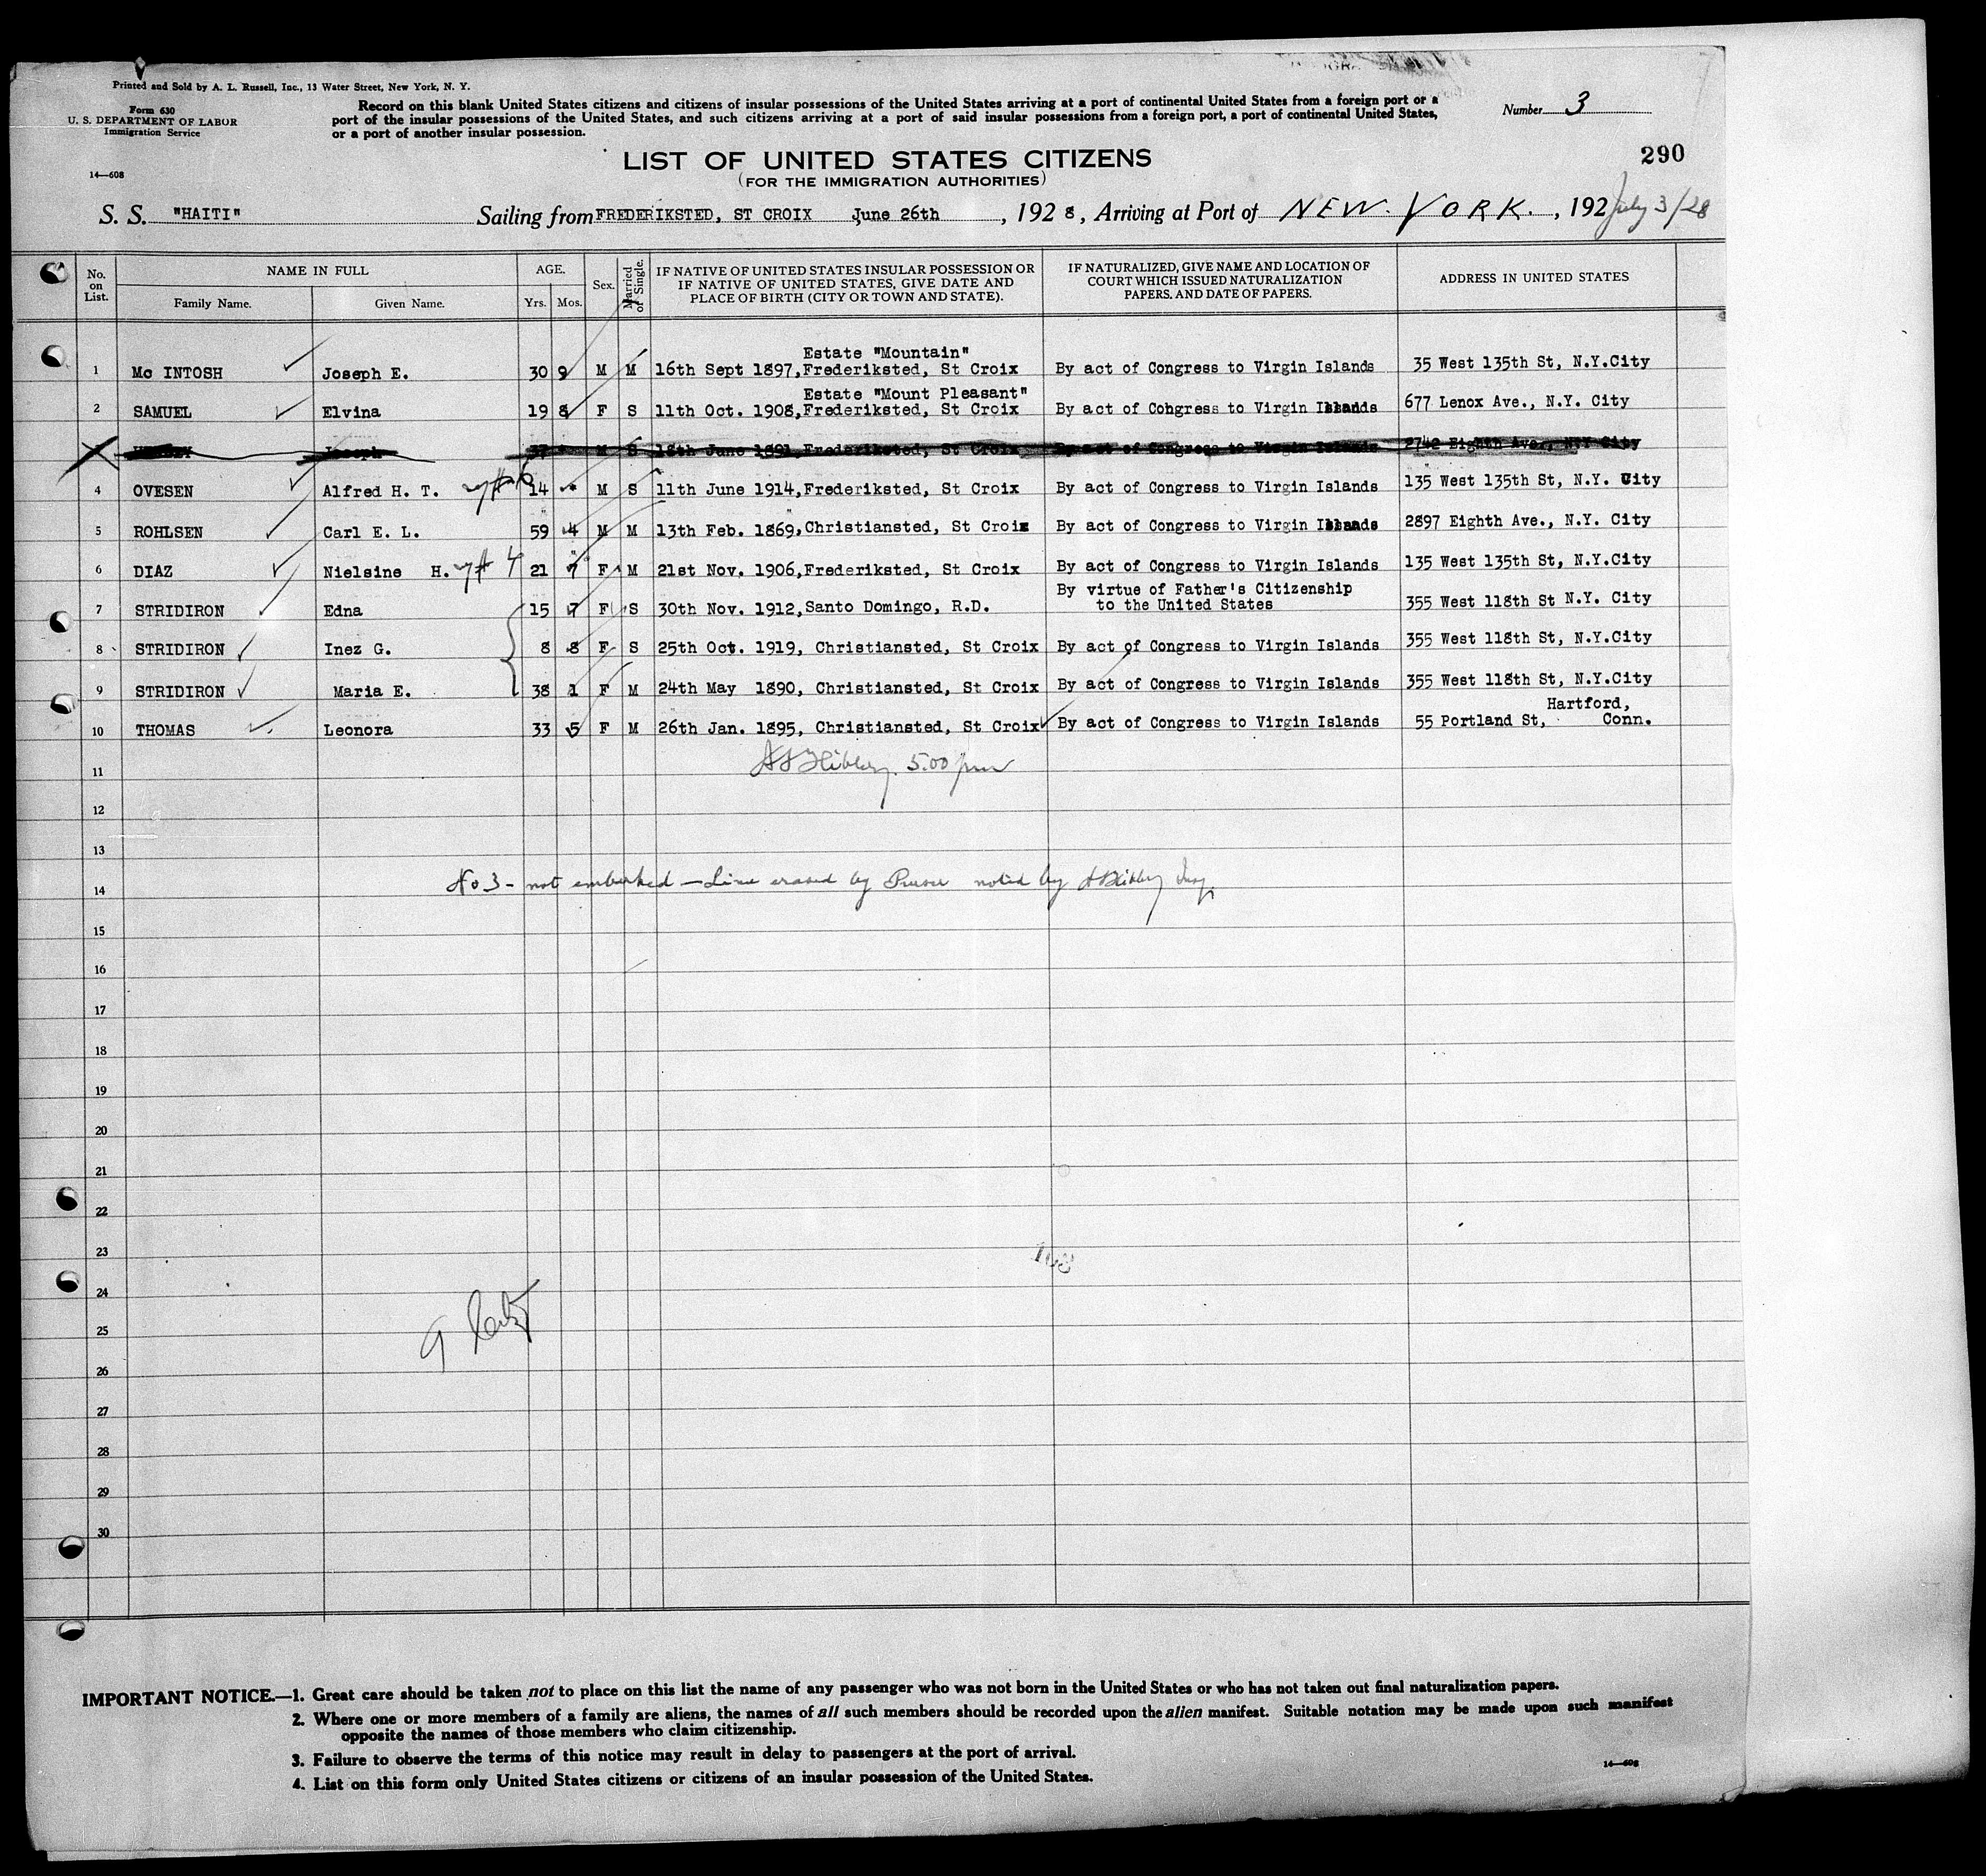 Printed and Sold by A. L. Russell, Inc., 13 Water Street, New York, N. Y.
Form 630
U. S. DEPARTMENT OF LABOR
Immigration Service
14—608
Record on this blank United States citizens and citizens of insular possessions of the United States arriving at a port of continental United States from a foreign port or a
port of the insular possessions of the United States, and such citizens arriving at a port of said insular possessions from a foreign port, a port of continental United States,
or a port of another insular possession.
Number 3
290
LIST OF UNITED STATES CITIZENS
(FOR THE IMMIGRATION AUTHORITIES)
S. S. "HAITI" Sailing from FREDERIKSTED, ST CROIX June 26th, 1928, Arriving at Port of NEW YORK., 192 July 3/28
No. on List. NAME IN FULL AGE. Sex. Married or Single. IF NATIVE OF UNITED STATES INSULAR POSSESSION OR IF NATIVE OF UNITED STATES, GIVE DATE AND PLACE OF BIRTH (CITY OR TOWN AND STATE). IF NATURALIZED, GIVE NAME AND LOCATION OF COURT WHICH ISSUED NATURALIZATION PAPERS, AND DATE OF PAPERS. ADDRESS IN UNITED STATES
Family Name. Given Name. Yrs. Mos.
Estate "Mountain"
1 Mc INTOSH Joseph E. 30 9 M M 16th Sept 1897, Frederiksted, St Croix By act of Congress to Virgin Islands 35 West 135th St, N.Y.City
Estate "Mount Pleasant"
2 SAMUEL Elvina 19 8 F S 11th Oct. 1908, Frederiksted, St Croix By act of Congress to Virgin Islands 677 Lenox Ave., N.Y. City
Joseph 37 M S 18th June 1891, Frederiksted, St Croix By act of Congress to Virgin Islands 2742 Eighth Ave., N.Y City
4 OVESEN Alfred H. T. 14 M S 11th June 1914, Frederiksted, St Croix By act of Congress to Virgin Islands 135 West 135th St, N.Y. City
5 ROHLSEN Carl E. L. 59 4 M M 13th Feb. 1869, Christiansted, St Croix By act of Congress to Virgin Islands 2897 Eighth Ave., N.Y. City
6 DIAZ Nielsine H. 21 7 F M 21st Nov. 1906, Frederiksted, St Croix By act of Congress to Virgin Islands 135 West 135th St, N.Y.City
7 STRIDIRON Edna 15 7 F S 30th Nov. 1912, Santo Domingo, R.D. By virtue of Father's Citizenship to the United States 355 West 118th St N.Y. City
8 STRIDIRON Inez G. 8 8 F S 25th Oct. 1919, Christiansted, St Croix By act of Congress to Virgin Islands 355 West 118th St, N.Y.City
9 STRIDIRON Maria E. 38 1 F M 24th May 1890, Christiansted, St Croix By act of Congress to Virgin Islands 355 West 118th St, N.Y.City
10 THOMAS Leonora 33 5 F M 26th Jan. 1895, Christiansted, St Croix By act of Congress to Virgin Islands 55 Portland St, Hartford, Conn.
11 5.00 pm
12
13
14 No 3 - not embarked — Line erased by Purser noted by
15
16
17
18
19
20
21
22
23
24
25
26
27
28
29
30
IMPORTANT NOTICE.—1. Great care should be taken not to place on this list the name of any passenger who was not born in the United States or who has not taken out final naturalization papers.
2. Where one or more members of a family are aliens, the names of all such members should be recorded upon the alien manifest. Suitable notation may be made upon such manifest
opposite the names of those members who claim citizenship.
3. Failure to observe the terms of this notice may result in delay to passengers at the port of arrival.
4. List on this form only United States citizens or citizens of an insular possession of the United States.
14—608